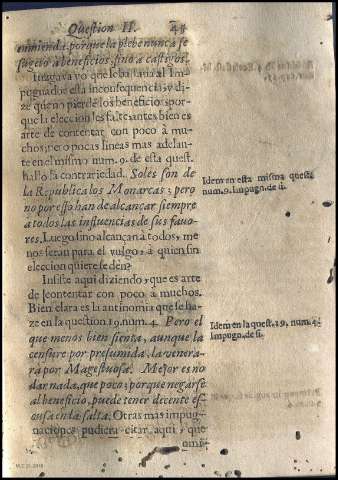 Question II. 41
enmienda, porque la plebe nunca se
sugetò à beneficios, sino a castigos.
Iuzgava yo que le bastava al Im-
pugnador esta inconsequencia; y di-
ze que no pierde los beneficios por-
que la eleccion les falte: antes bien es
arte de contentar con poco à mu-
chos; y e o pocas lineas mas adelan-
te en el mismo num. 9. de esta quest.
hallò la contrariedad. Soles son de
la Republica los Monarcas; pero
no por esso han de alcançar siempre
a todos las influencias de sus favo-
res. Luego sino alcançan à todos, me-
nos seràn para el vulgo, à quien sin
eleccion quiere se dèn?
Idem en esta misma quest.
num. 9. Impugn. de si.
Insiste aqui diziendo, que es arte
de contentar con poco à muchos.
Bien clara es la antinomia que se ha-
ze en la question 19. num. 4. Pero el
que menos bien sienta, aunque la
censure por presumida, la venera-
rà por Magestuosa. Mejor es no
dar nada, que poco; porque negarse
al beneficio, puede tener decente es-
cusa en la falta. Otras mas impug-
naciones pudiera citar aqui, que
omi-
Idem en la quest. 19. num. 4.
Impugn. de si.